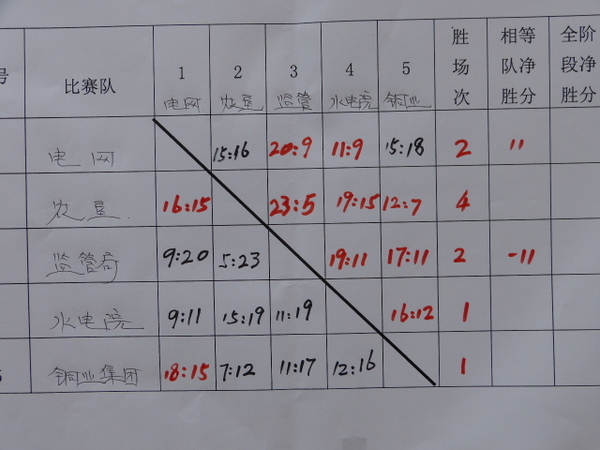 号 比赛队 1 2 3 4 5 胜场次 相等队净胜分 全阶段净胜分
电网 农垦 监管 水电院 铜业
电网 15:16 20:9 11:9 15:18 2 11
农垦 16:15 23:5 19:15 12:7 4
监管奇 9:20 5:23 19:11 17:11 2 -11
水电院 9:11 15:19 11:19 16:12 1
铜业集团 18:15 7:12 11:17 12:16 1